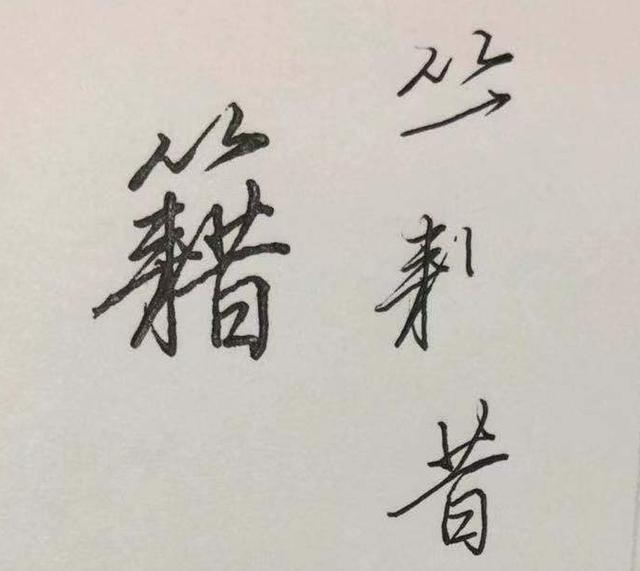 籍
𥫗
耒
昔